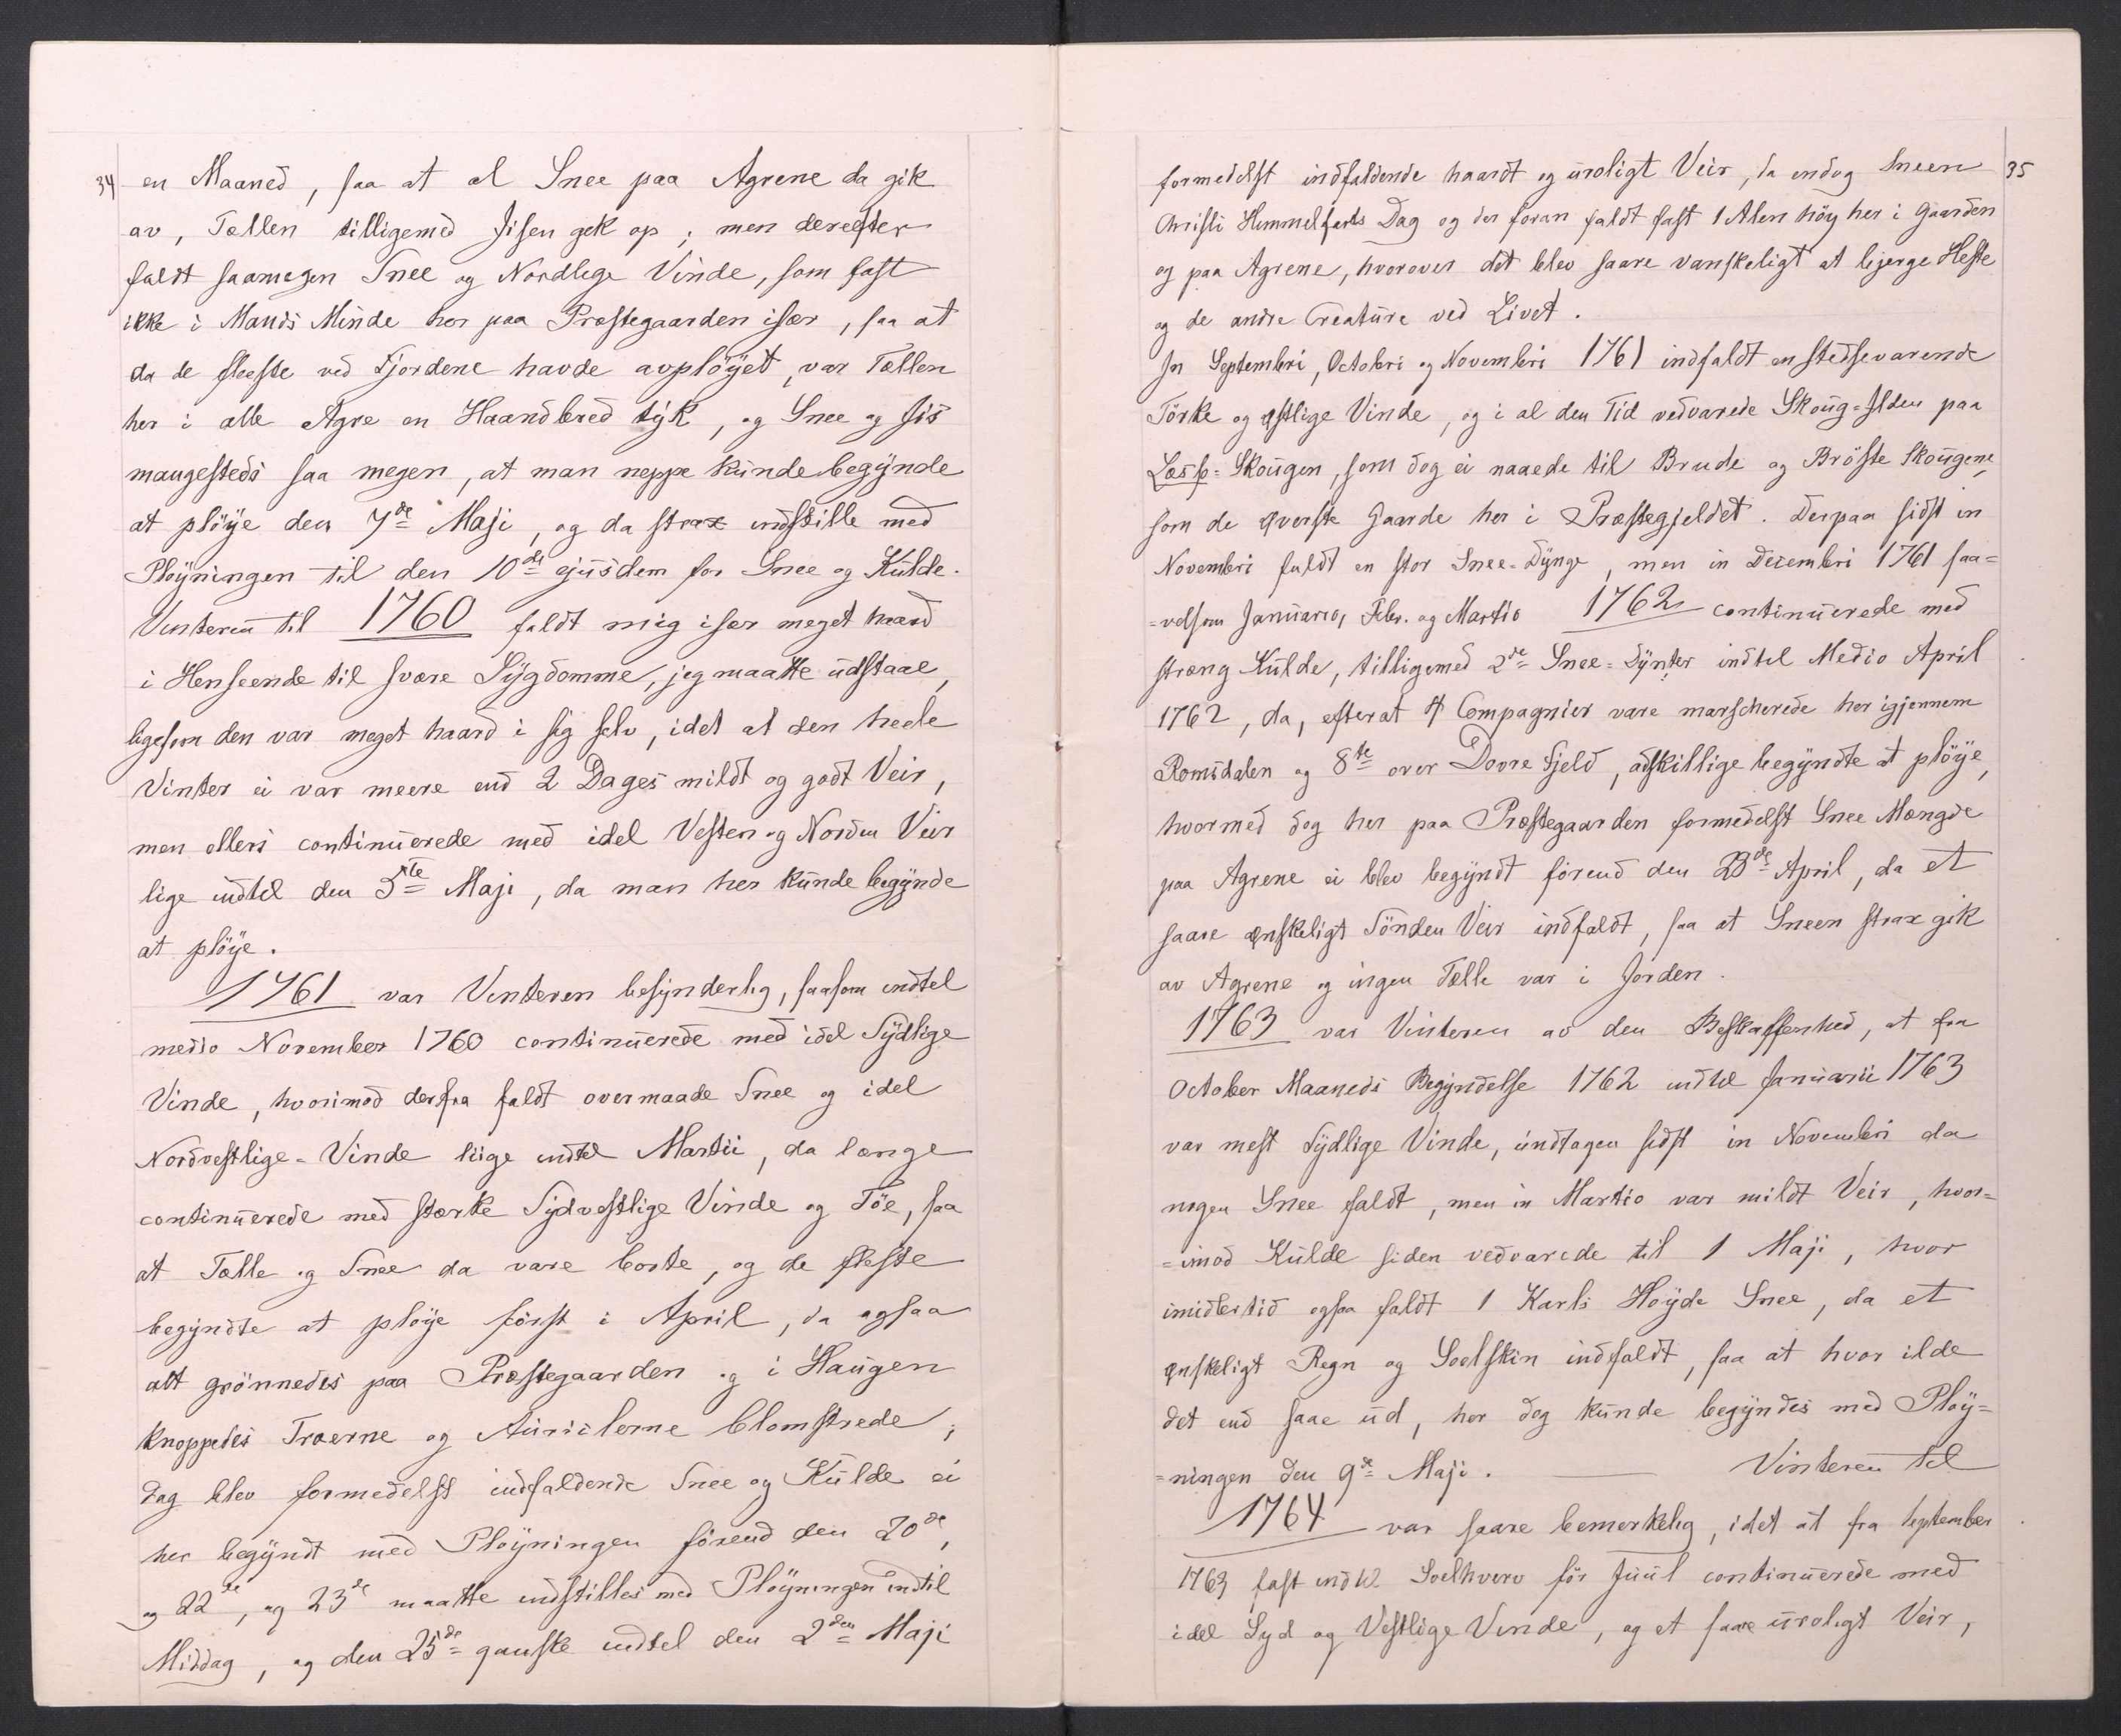 34
en Maaned, saa at al Snee paa Agrene da gik
av, Tællen tilligemed Jisen gik op; men derefter
faldt saamegen Snee og Nordlige Vinde, som fast
ikke i Mands Minde her paa Præstegaarden især, saa at
da de fleeste ved Fjordene havde avplöÿet, var Tællen
her i alle Agre en Haandbred tÿk, og Snee og Jis
mangesteds saa megen, at man neppe kunde begÿnde
at plöÿe den 7de Maji, og da strax indstille med
Pløÿningen til den 10de ejusdem for Snee og Kulde.
Vinteren til 1760 faldt mig især meget haard
i Henseende til svære Sÿgdomme, jeg maatte udstaae,
ligesom den var meget haard i sig selv, idet at den heele
Vinter ei var meere end 2 Dages mildt og godt Veir,
men ellers continuerede med idel Vesten og Norden Veir
lige indtil den 5te Maji, da man her kunde begÿnde
at plöÿe.
1761 var Vinteren besÿnderlig, saasom indtil
medio November 1760 continuerede med idel Sÿdlige
Vinde, hvorimod derfra faldt overmaade Snee og idel
Nordvestlige-Vinde liige indtil Martii, da længe
continuerede med stærke Sÿdvestlige Vinde og Töe, saa
at Tælle og Snee da vare borte, og de fleste
begÿndte at plöÿe först i April, da ogsaa
alt grönnedes paa Præstegaarden og i Haugen
knoppedes Træerne og Auriclerne blomstrede;
dog blev formedelst indfaldende Snee og Kulde ei
her begÿndt med Pløÿningen förend den 20de,
og 22de, og 23de maatte indstilles med Pløÿningen indtil
Middag, og den 25de ganske indtil den 2den Maji
35
formedelst indfaldende haardt og uroligt Veir, da endog Sneen
Christi Himmelfarts Dag og der foran faldt fast 1 Alen höy her i Gaarden
og paa Agrene, hvorover det blev saare vanskeligt at bjerge Heste
og de andre Creature ved Livet.
In Septembri, Octobri og Novembri 1761 indfaldt en stedsevarende
Törke og østlige Vinde, og i al den Tid vedvarede Skoug-Ilden paa
Læsø-Skougen, som dog ei naaede til Brude og Bröste Skougene,
som de øverste Gaarde her i Præstegjeldet. Derpaa sidst in
Novembri faldt en stor Snee-Dÿnge, men in Decembri 1761 saa=
=velsom Januario, Febr. og Martio 1762 continuerede med
stræng Kulde, tilligemed 2de Snee-Dÿnter indtil Medio April
1762, da, efterat 4 Compagnier vare marscherede her igjennem
Romsdalen og 8te over Dovre Fjeld, adskillige begÿndte at plöÿe,
hvormed dog her paa Præstegaarden formedelst Snee Mængde
paa Agrene ei blev begÿndt förend den 23de April, da et
saare ønskeligt Sönden Veir indfaldt, saa at Sneen strax gik
av Agrene og ingen Tælle var i Jorden.
1763 var Vinteren av den Beskaffenhed, at fra
October Maaneds Begÿndelse 1762 indtil Januarii 1763
var mest Sÿdlige Vinde, undtagen sidst in Novembri da
nogen Snee faldt, men in Martio var mildt Veir, hvor=
=imod Kulde siden vedvarede til 1 Maji, hvor
imidlertid ogsaa faldt 1 Karls Høÿde Snee, da et
ønskeligt Regn og Soelskin indfaldt, saa at hvor ilde
det end saae ud, her dog kunde begÿndes med Pløÿ=
=ningen den 9de Maji. — Vinteren til
1764 var saare bemerkelig, idet at fra September
1763 fast indtil Soelhverv för Juul continuerede med
idel Syd og Vestlige Vinde, og et saare uroligt Veir,